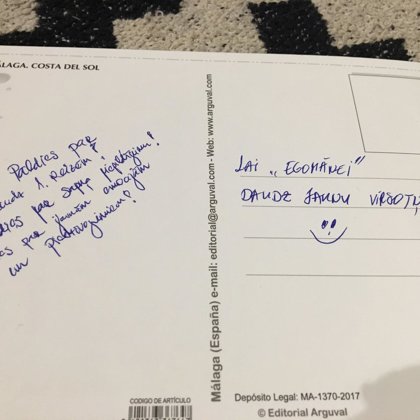 ÁLAGA. COSTA DEL SOL
Paldies par
1. Reizēm!
par
par jaunām emocijām
un piedzīvojumiem!
Málaga (España) e-mail: editorial@arguval.com - Web: www.arguval.com
LAI "EGOMĀNCI"
DAUDZ JAUNU VIRSOTŅ
CODIGO DE ARTÍCULO
Depósito Legal: MA-1370-2017
© Editorial Arguval